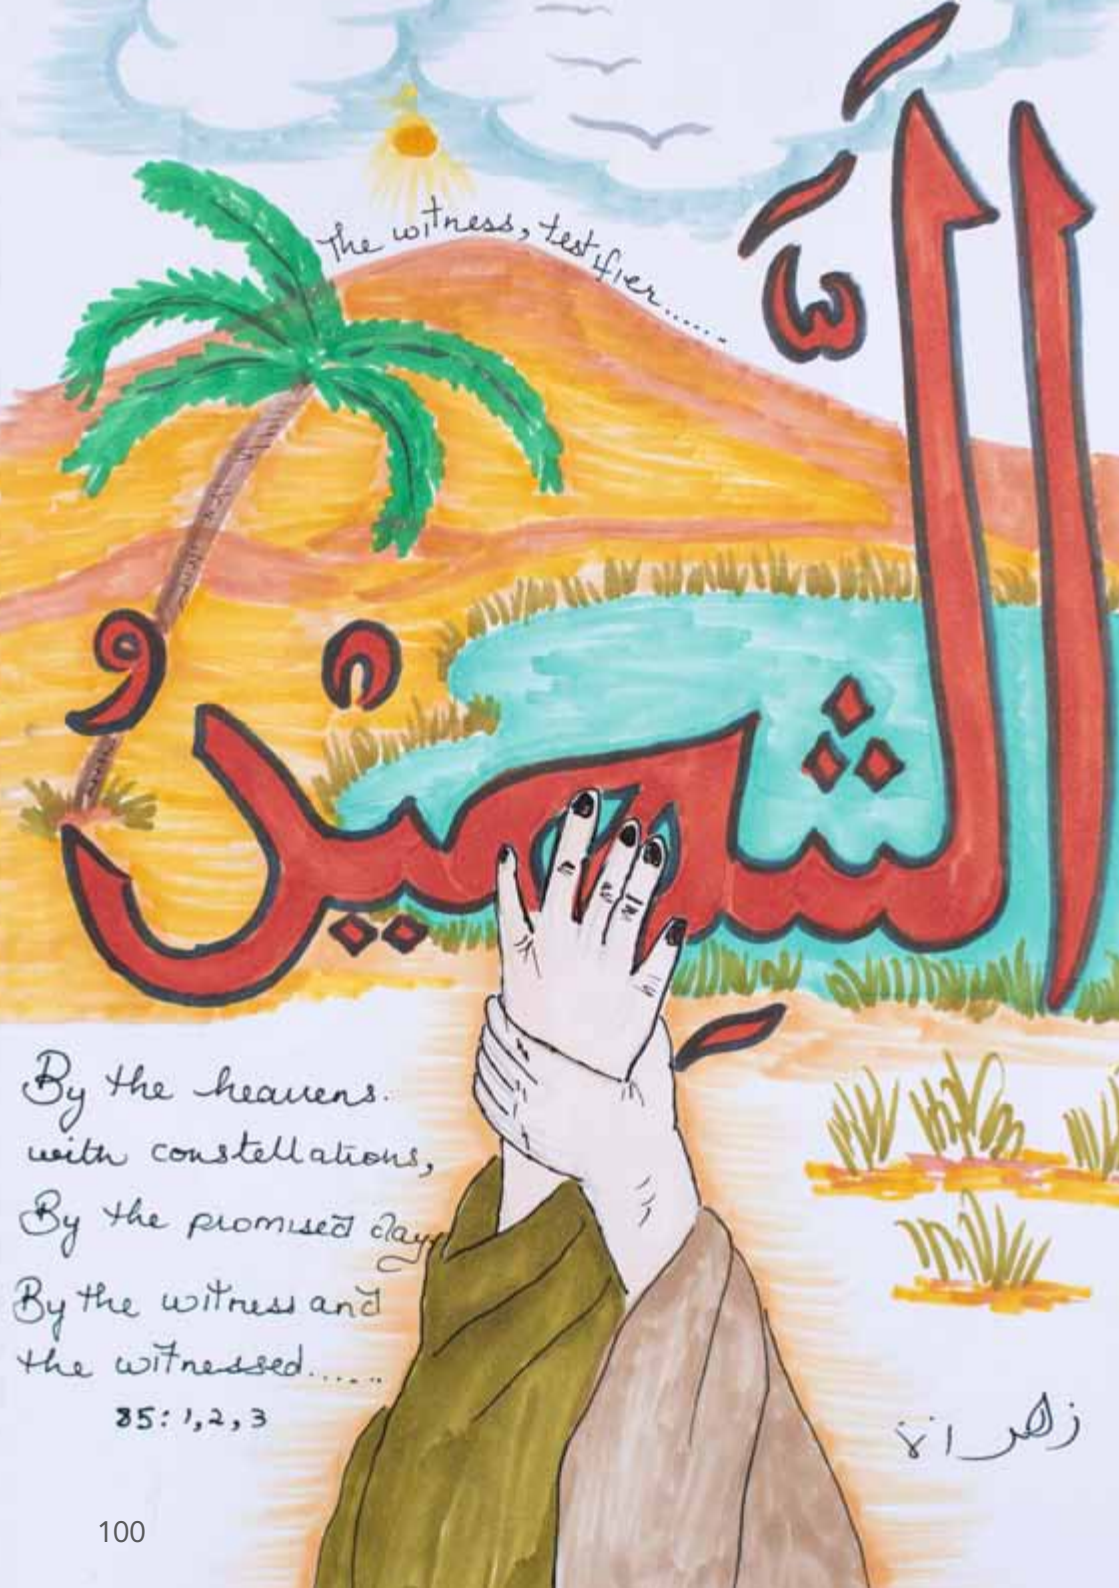 The witness, testifier......
اَلشَّهِيْدُ
By the heavens.
with constellations,
By the promised day,
By the witness and
the witnessed......
85: 1, 2, 3
100